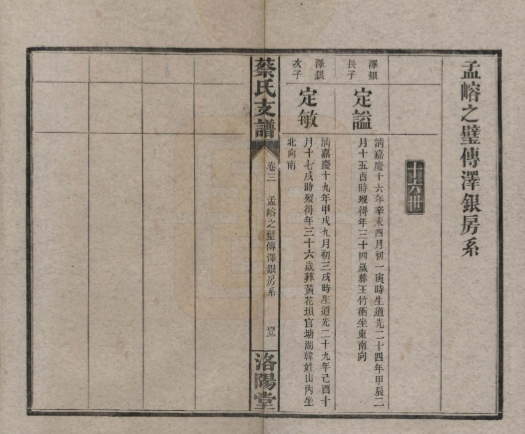 孟嵱之璧傳澤銀房系
十六世
澤銀
長子
定謚
清嘉慶十六年辛未四月初一寅時生道光二十四年甲辰二
月十五酉時歿得年三十四歲葬王竹衝坐東南向
澤銀
次子
定敏
清嘉慶十九年甲戌九月初三戌時生道光二十九年己酉十
月十七戌時歿得年三十六歲葬黃花垻官塘湖韓姓山內坐
北向南
蔡氏支譜
卷三
孟嵱之璧傳澤銀房系
洛陽堂